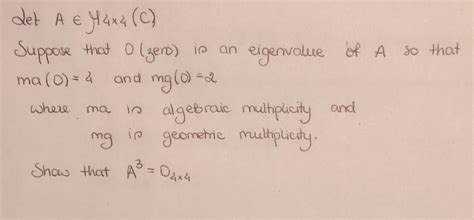 Let A ∈ M4x4 (C)
Suppose that 0 (zero) is an eigenvalue of A so that
ma(0)=4 and mg(0)=2
where ma is algebraic multiplicity and
mg is geometric multiplicity.
Show that A³ = O4x4